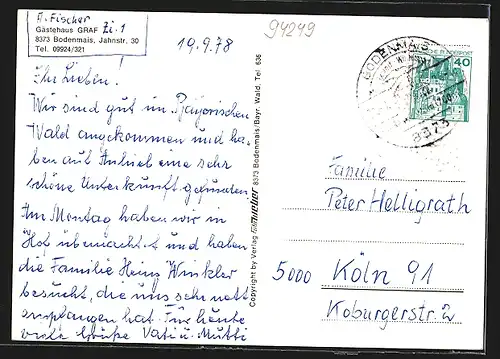 A. Fischer
Gästehaus GRAF Zi. 1
8373 Bodenmais, Jahnstr. 30
Tel. 09924/321
94249
19.9.78
Ihr Lieben!
Wir sind gut im Bayerischen
Wald angekommen und ha-
ben auf Anhieb eine sehr
schöne Unterkunft gefunden.
Am Montag haben wir in
Hof übernachtet und haben
die Familie Heinz Winkler
besucht, die uns sehr nett
empfangen hat. Für heute
viele Grüße Vati u. Mutti
Copyright by Verlag 8373 Bodenmais/Bayr. Wald, Tel 636
BODENMAIS
8373
40
Familie
Peter Helligrath
5000 Köln 91
Koburgerstr. 2